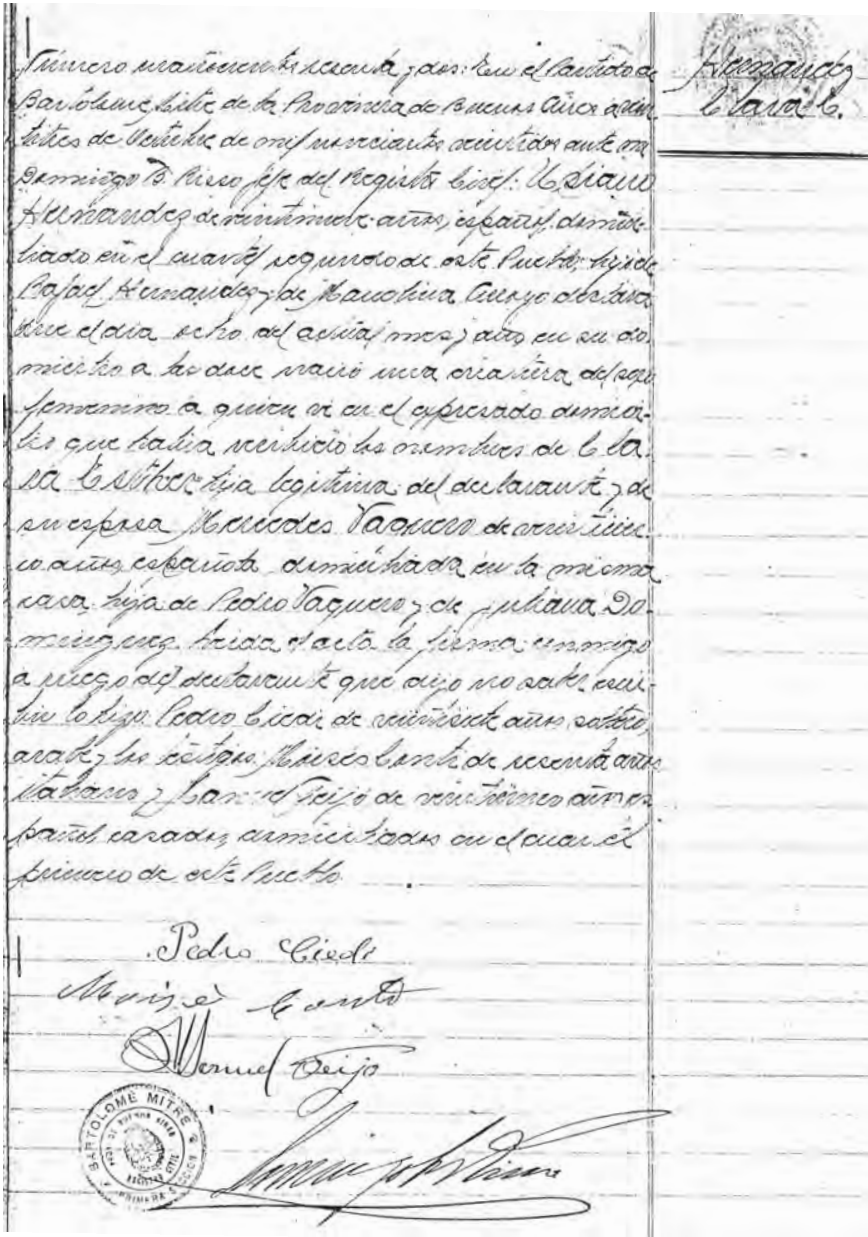 Número cuatrocientos sesenta y dos: En el Partido de
Bartolomé Mitre de la Provincia de Buenos Aires a vein
titres de Octubre de mil novecientos veintidos ante mi
Domingo B. Risso jefe del Registro Civil: Ulpiano
Hernandez de veintinueve años, español, domici-
liado en el cuartel segundo de este Pueblo, hijo de
Rafael Hernandez y de Marcelina declara
que el dia ocho del actual mes y año en su do-
micilio a las doce nació una criatura del sexo
femenino a quien vi en el expresado domici-
lio que habia recibido los nombres de Cla-
ra Esther hija legitima del declarante y de
su esposa Mercedes Vaquero de veinticin-
co años, española domiciliada en la misma
casa, hija de Pedro Vaquero y de Juliana Do-
minguez. Leida el acta la firma conmigo
a ruego del declarante que dijo no saber escri-
bir lo hizo Pedro Ciedi de veintisiete años soltero,
arabe y los testigos Moisés Conti de sesenta años
italiano y Manuel Feijó de veinticinco años es
pañol casados, domiciliados en el cuartel
primero de este Pueblo.
Hernandez
Clara E.
Pedro Ciedi
Moisè Conti
Manuel Feijo
BARTOLOMÉ MITRE
PCIA. DE BUENOS AIRES
REGISTRO CIVIL
PRIMERA SECCION